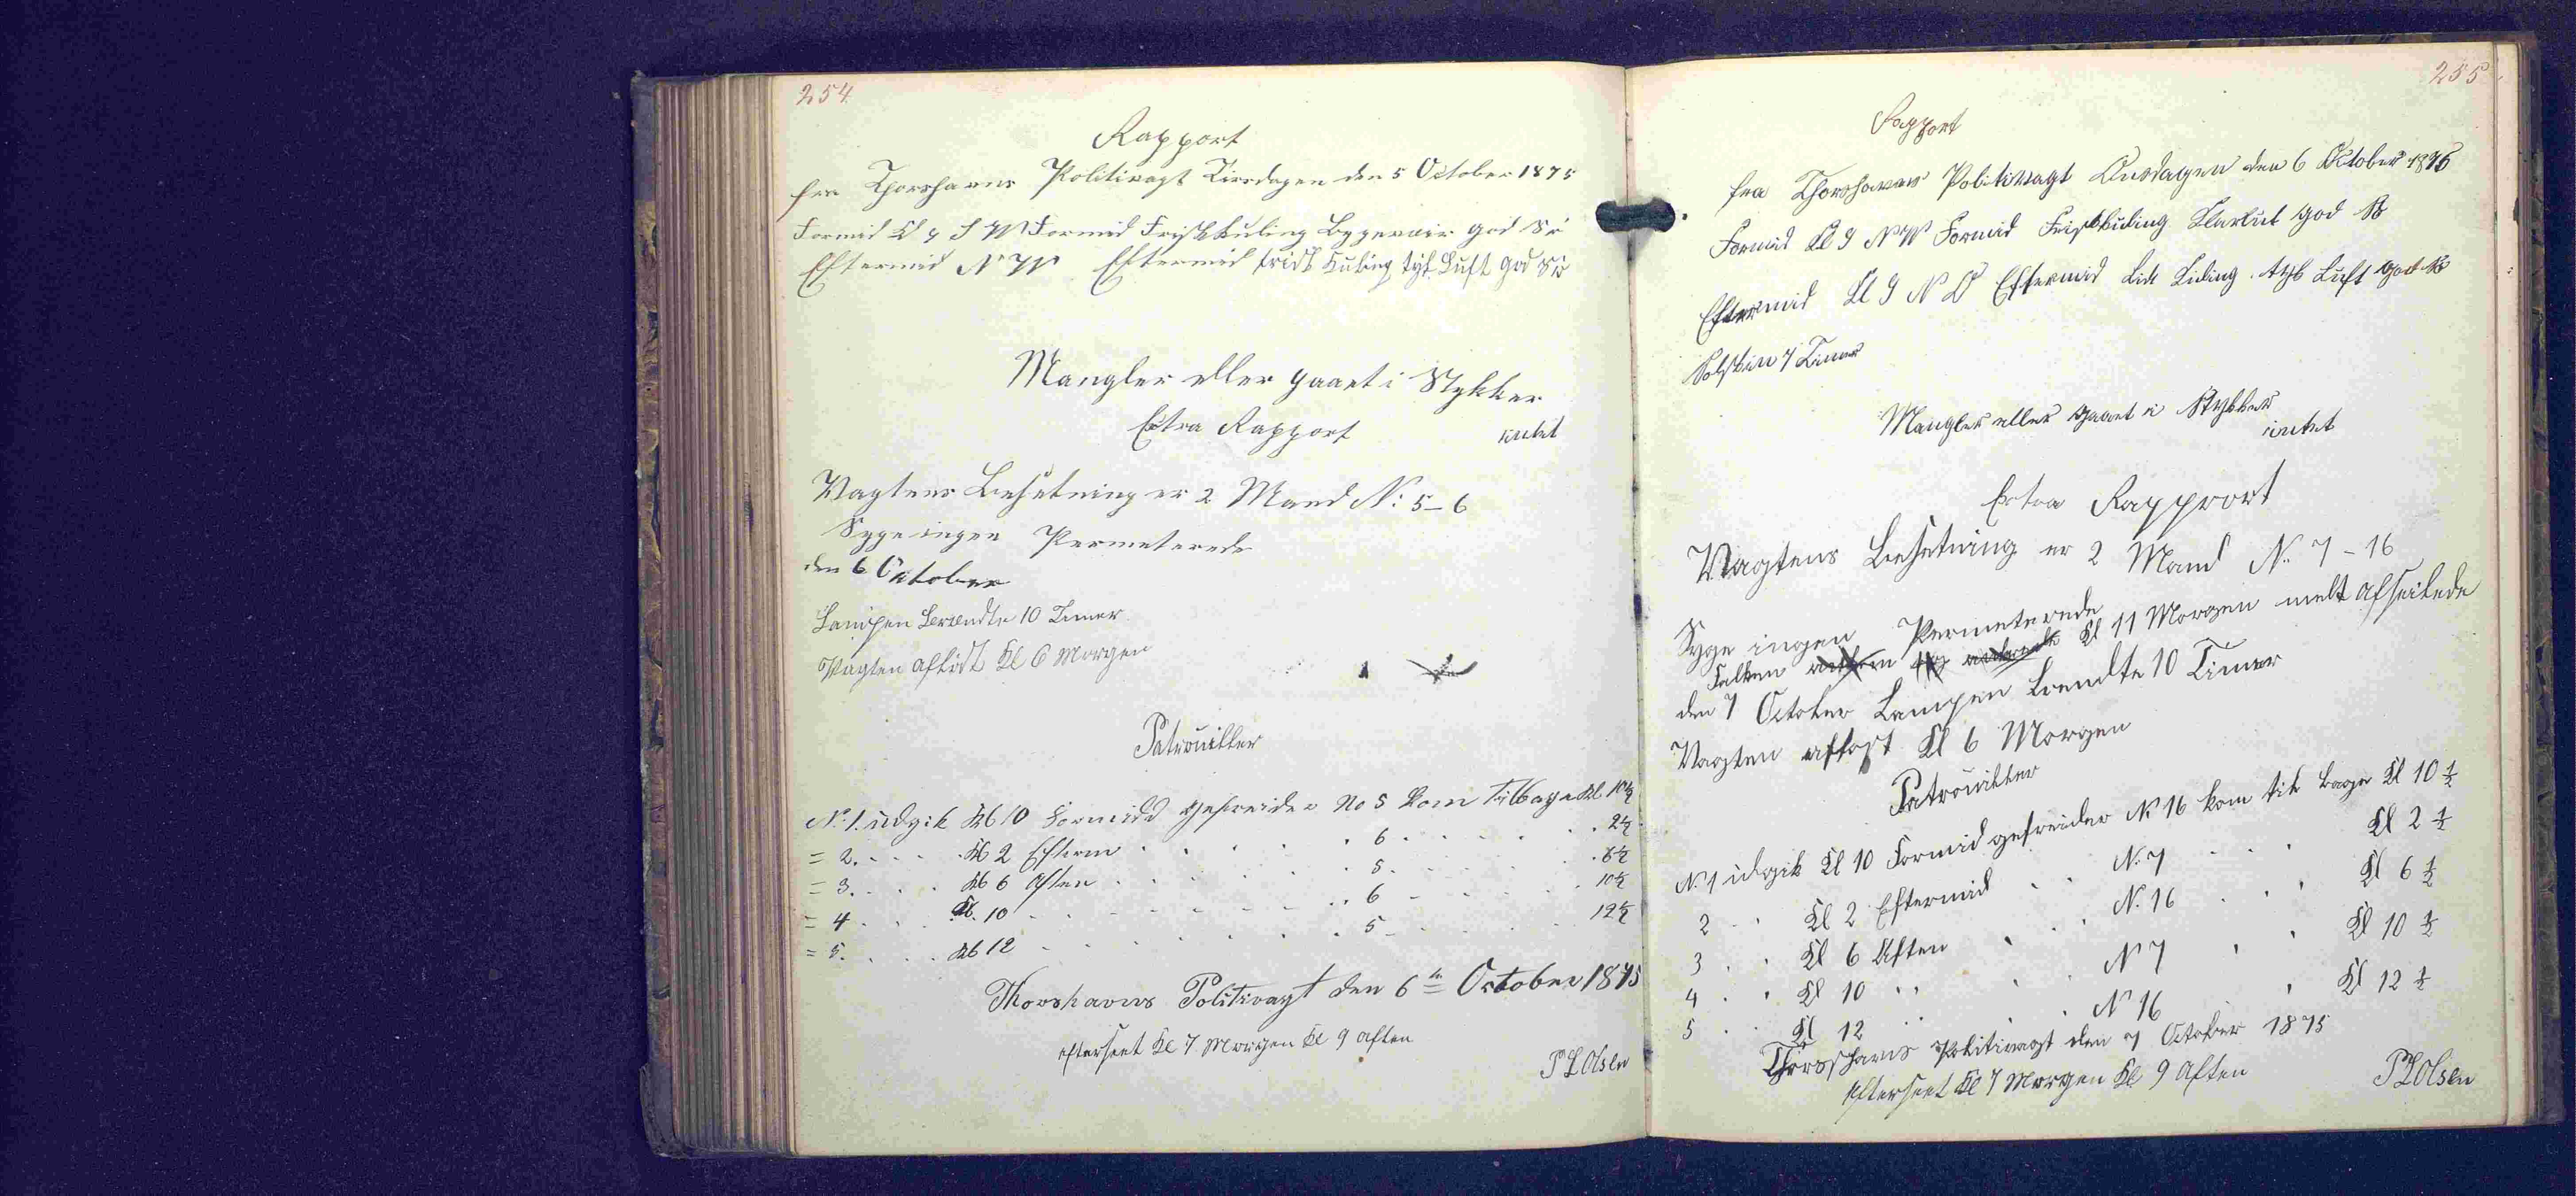 254
Rapport
fra Thorshavns Politivagt Tirsdagen den 5 October 1875
Formid Kl 9 S W Formid Friskkuling Bygeveir god Sö
Eftermid N W Eftermid frisk Kuling tyk Luft god Sö
Mangler eller gaaet i Stykker
Extra Rapport intet
Vagtens Besetning er 2 Mand N: 5-6
Syge ingen Permeterede
den 6 October
Lampen brændte 10 Timer
Vagten afløst Kl 6 Morgen
Patrouiller
N: 1. udgik Kl 10 Formidd gefreider No 5 kom tilbage Kl 10½
= 2. . . . Kl 2 Efterm . . . 6 . . . 2½
= 3. . . . Kl 6 Aften . . . 5 . . . 6½
= 4 . . . Kl. 10 . . . 6 . . . 10½
= 5. . . . Kl 12 . . . 5 . . . 12½
Thorshavns Politivagt den 6te October 1875
efterseet Kl 7 Morgen Kl 9 Aften
P L Olsen
255
Rapport
fra Thorshavns Politivagt Onsdagen den 6 October 1875
Formid Kl 9 N W Formid Friskkuling Klarluft god Sö
Eftermid Kl 9 N O Eftermid Kuling tyk Luft god Sö
Solskin 7 Timer
Mangler eller gaaet i Stykker
intet
Extra Rapport
Vagtens Besetning er 2 Mand N: 7 - 16
Syge ingen Permeterede
Falken Kl 11 Morgen melt afseilede
den 7 October Lampen brendte 10 Timer
Vagten afløst Kl 6 Morgen
Patrouiller
N: 1 udgik Kl 10 Formid gefreider N 16 kom til bage Kl 10 ½
2 . . Kl 2 Eftermid . . N: 7 . . . Kl 2 ½
3 . . Kl 6 Aften . . N: 16 . . Kl 6 ½
4 . . Kl 10 . . N 7 . . Kl 10 ½
5 . . Kl 12 . . N 16 . Kl 12 ½
Thorshavns Politivagt den 7 October 1875
Efterseet Kl 7 Morgen Kl 9 Aften
P L Olsen